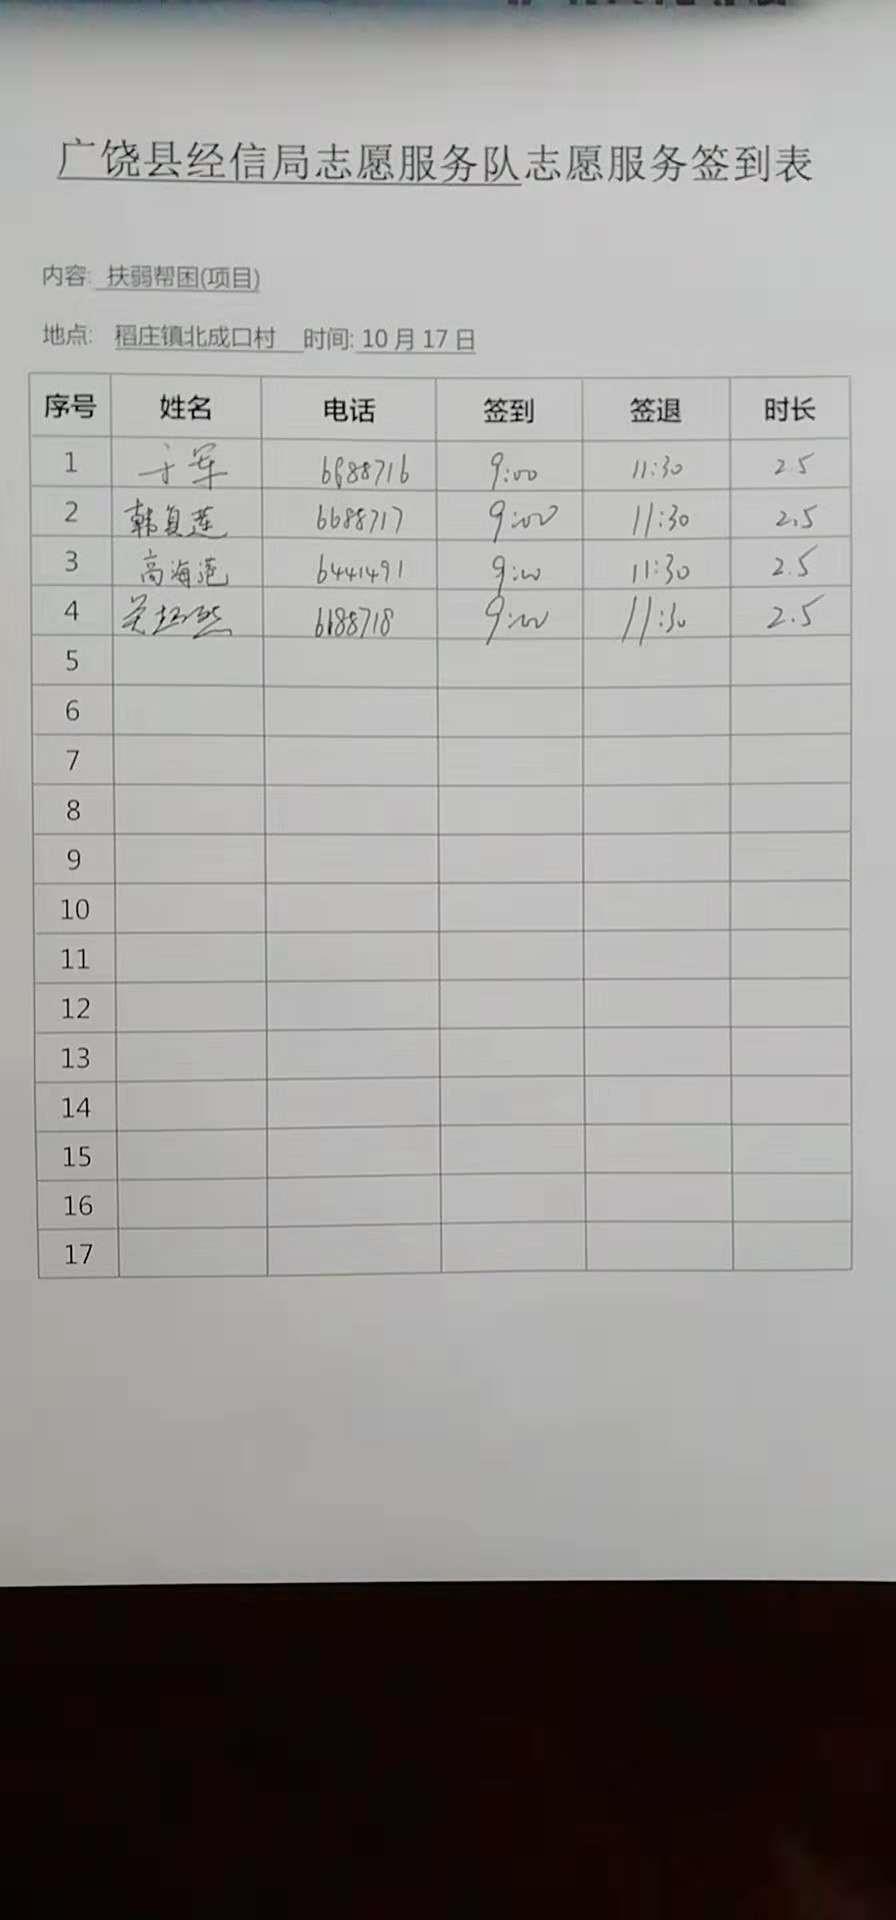 广饶县经信局志愿服务队志愿服务签到表
内容: 扶弱帮困(项目)
地点: 稻庄镇北成口村 时间: 10月17日
序号 姓名 电话 签到 签退 时长
1 于军 6688716 9:00 11:30 2.5
2 韩复莲 6688717 9:00 11:30 2.5
3 高海莲 6441491 9:00 11:30 2.5
4 6688718 9:00 11:30 2.5
5
6
7
8
9
10
11
12
13
14
15
16
17